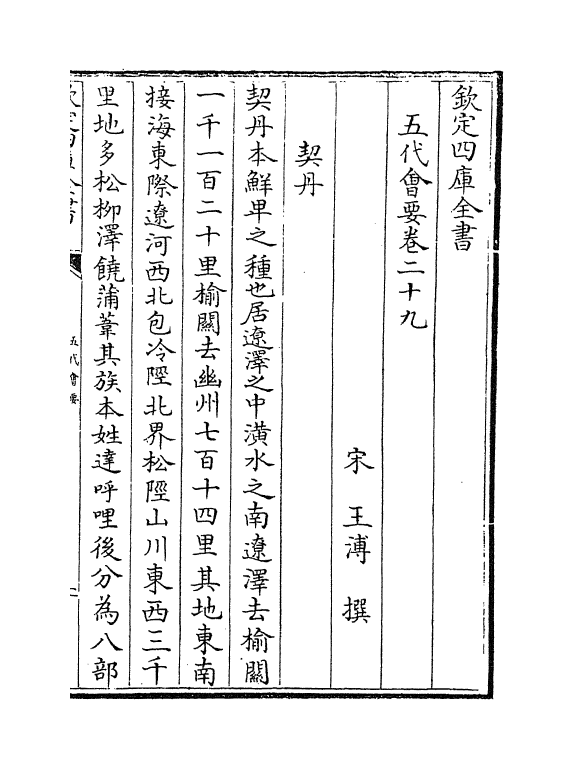 欽定四庫全書
五代會要卷二十九
宋 王溥 撰
契丹
契丹本鮮卑之種也居遼澤之中潢水之南遼澤去榆關
一千一百二十里榆關去幽州七百十四里其地東南
接海東際遼河西北包冷陘北界松陘山川東西三千
里地多松柳澤饒蒲葦其族本姓達呼哩後分為八部
欽定四庫全書
五代會要